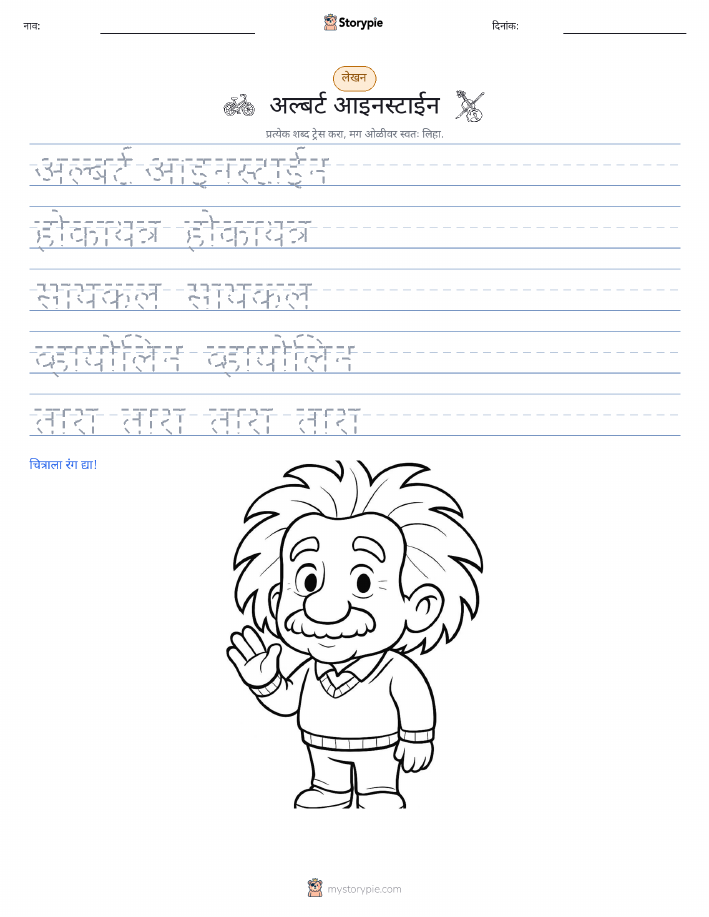 नाव:
Storypie
दिनांक:
लेखन
अल्बर्ट आइनस्टाईन
प्रत्येक शब्द ट्रेस करा, मग ओळीवर स्वतः लिहा.
अल्बर्ट आइनस्टाईन
होकायंत्र होकायंत्र
सायकल सायकल
व्हायोलिन व्हायोलिन
तारा तारा तारा तारा
चित्राला रंग द्या!
mystorypie.com